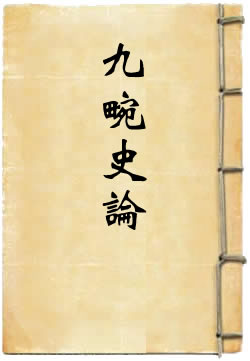 九畹史論